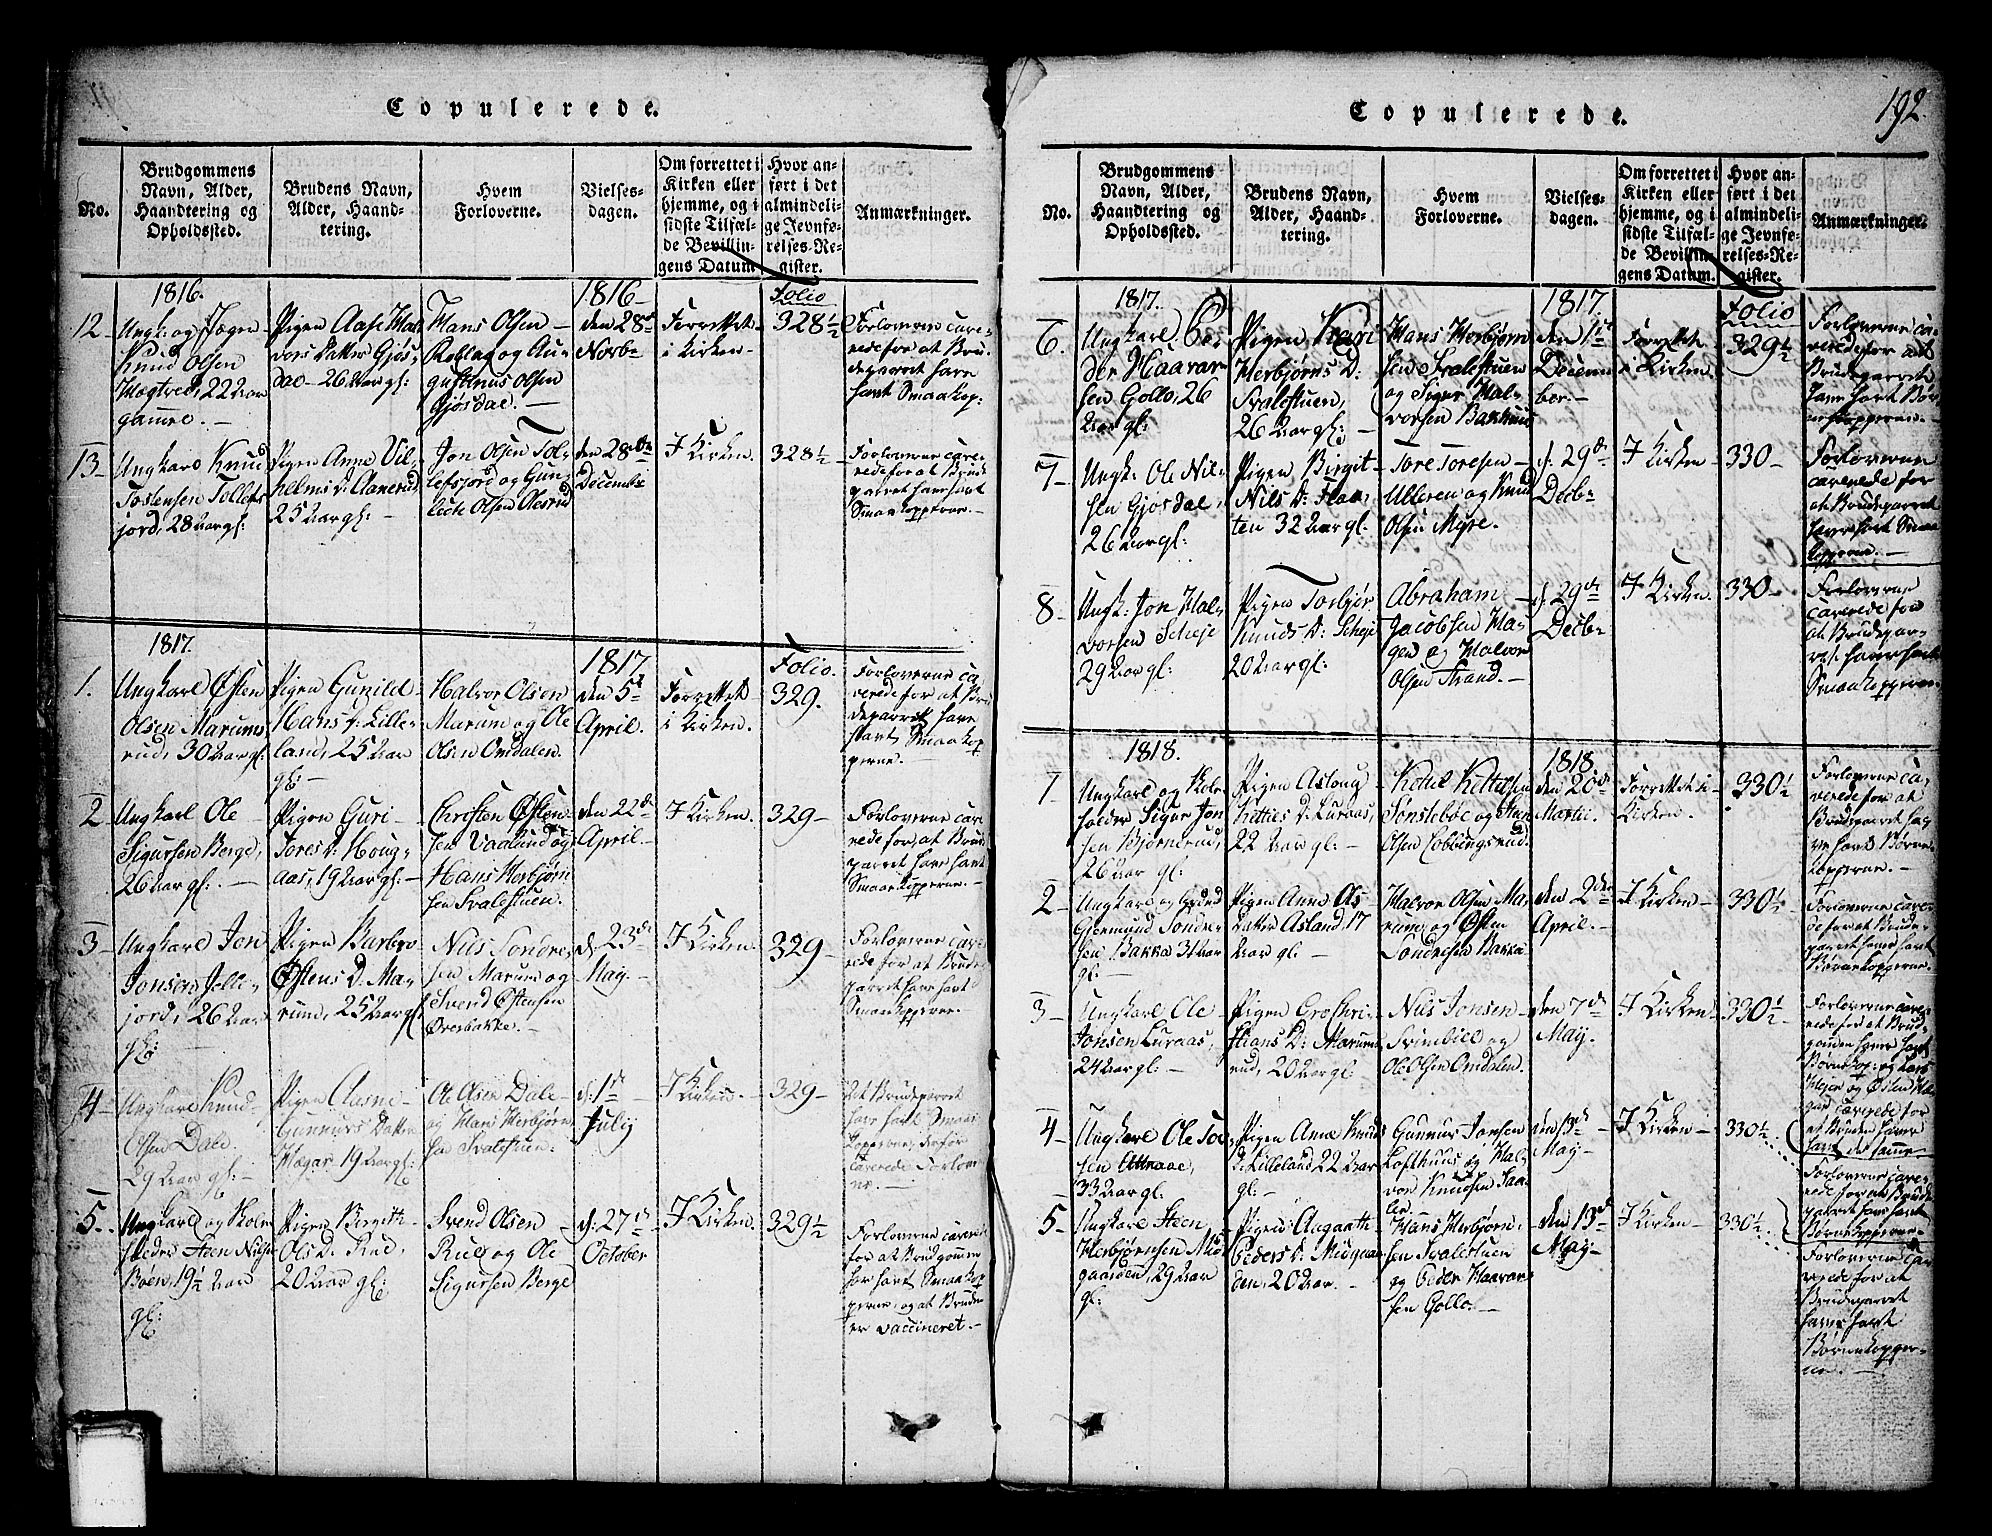 Copulerede.
No.
Brudgommens
Navn, Alder,
Haandtering og
Opholdssted.
Brudens Navn,
Alder, Haand-
tering.
Hvem
Forloverne.
Vielses-
dagen.
Om forrettet i
Kirken eller
hjemme, og i
sidste Tilfæl-
de Bevillin-
gens Datum
Hvor an-
ført i det
almindeli-
ge Jevnfø-
relses-Re-
gister.
Anmærkninger.
1816.
1816
Folio
12
Ungk: og
Knud Olsen
22 Aar
gamme.
Pigen Aase Hal-
vors Datter Gjøs-
dal 26 Aar gl:
Hans Olsen
Rollag og Au-
gustinus Olsen
Gjøsdal.
den 28de
Novbr
Forrettet
i Kirken
328½
Forloverne cave-
rede for at Bru-
deparret have
havt Smaakop:
13
Ungkarl Knud
Tostensen Tollefs
jord, 28 Aar gl:
Pigen Anne Vil-
helms D: Aanerud
25 Aar gl:
Jon Olsen Tol-
lefsjord og Gun-
Olsen Olsrud
den 28de
Decembr
I Kirken
328½
Forloverne cave-
rede for at Brude
parret have havt
Smaakopperne.
1817.
1817.
Folio.
1.
Ungkarl Østen
Olsen Marums
rud, 30 Aar gl.
Pigen Gunild
Hans D: Lille-
land, 25 Aar
gl:
Halvor Olsen
Marum og Ole
Olsen Omdalen.
den 5te
April.
Forrettet
i Kirken.
329.
Forloverne ca-
verede for at Bru
deparret have
havt Smaakop
perne.
2
Ungkarl Ole
Sigursen Berge,
26 Aar gl:
Pigen Guri
Tores D: Houg-
aas, 19 Aar gl:
Christen Østen
sen Vaalund og
Hans Herbjørn
sen Svalestuen.
den 22de
April
I Kirken.
329
Forloverne cave-
rede for at Brude
parret have havt
Smaakopperne.
3
Ungkarl Jon
Jonsen Jelle-
jord, 26 Aar
gl:
Pigen Barbro
Østens D. Ma-
rum, 25 Aar gl
Nils Sondre-
sen Marum og
Svend Østensen
Øvrebakke.
d. 23de
May
I Kirken.
329
Forloverne cave-
rede for at Brude
parret have havt
Smaakopperne.
4
Ungkarl Knud
Olsen Dale
29 Aar gl:
Pigen Aasne
Gunnurs Datter
19 Aar gl:
Ole Olsen Dale
og Hans Herbjørn
sen Svalestuen.
d: 1te
July
I Kirken.
329
At Brudeparret
have havt Smaa
kopperne, derfor
caverede Forlover
ne.
5.
Ungkarl og Skole
holder Steen Nilsen
Bøen, 19½ Aar
gl:
Pigen Birgith
Ols D. Rud,
20 Aar gl:
Svend Olsen
Rue og Ole
Sigursen Berge
d: 27de
October
I Kirken.
329½
Forloverne caverede
for at Brudgommen
har havt Smaakop
perne, og at Bruden
er vaccineret.
Copulerede.
192.
No.
Brudgommens
Navn, Alder,
Haandtering og
Opholdssted.
Brudens Navn,
Alder, Haand-
tering.
Hvem
Forloverne.
Vielses-
dagen.
Om forrettet i
Kirken eller
hjemme, og i
sidste Tilfæl-
de Bevillin-
gens Datum.
Hvor an-
ført i det
almindeli-
ge Jevnfø-
relses-Re-
gister.
Anmærkninger.
1817.
1817.
Folio
6.
Ungkarl Pe-
der Haavar
sen Gollo, 26
Aar gl:
Pigen Kari
Herbjørns D:
Svalestuen,
26 Aar gl:
Hans Herbjørn
sen Svalestuen
og Sigur Hal-
vorsen
den 1te
Decem
ber.
Forrettet
i Kirken.
329½
Forloverne ca-
verede for at
Brudeparret
have havt Bør-
nekopperne.
7
Ungk: Ole Nil-
sen Gjøsdal,
26 Aar gl:
Pigen Birgit
Nils D: Flaa-
ten 32 Aar gl.
Tore Toresen
Ulleren og Knud
Olsen Myre.
d: 29de
Decbr
I Kirken
330
Forloverne
caverede for
at Brudeparret
have havt Smaa
kopperne.
8
Ungk: Jon Hal-
vorsen Scheje
29 Aar gl:
Pigen Torbjør
Knuds D: Scheje
20 Aar gl:
Abraham
Jacobsen Ha-
gen og Halvor
Olsen Strand.
d: 29de
Decbr
I Kirken.
330
Forloverne
caverede for
at Brudepar-
ret have havt
Smaakopperne.
1818.
1818.
1
Ungkarl og Skole
holder Sigur Jon
sen Bjørnerud,
26 Aar gl:
Pigen Aslaug
Kittils D. Luraas,
22 Aar gl:
Ketil Kittilsen
Sønstebøe og Gun
Olsen
den 20de
Martii.
Forrettet i
Kirken.
330½
Forloverne ca-
verede for at
Brudeparret ha-
ve havt Børne-
kopperne.
2
Ungkarl og
Gjermund Sondre
sen Bakka 31 Aar
gl:
Pigen Anne As
Datter Asland 17
Aar gl:
Halvor Olsen Ma-
rum og Østen
Sondresen Bakka
den 2den
April.
I Kirken
330½
Forloverne cavere-
de for at Brude-
parret have havt
Børnekopperne.
3
Ungkarl Ole
Jonsen Luraas,
24 Aar gl:
Pigen Gro Chri-
stians D: Marums
rud, 20 Aar gl:
Nils Jonsen
og
Ole Olsen Omdalen.
den 7de
May.
I Kirken
330½
Forloverne cave-
rede for at Brud-
gommen have havt
Børnekop: og Lars
og Østen
caverede for
at Bruden haver
havt de samme
4
Ungkarl Ole Tor
sen
33 Aar gl:
Pigen Anne Knuds
D. Lilleland 22 Aar
gl:
Gunnur Jonsen
Lofthuus og Hal-
vor Knudsen Saa-
ler.
den 13de
May
I Kirken
330½
Forloverne cave-
rede for at Brude
parret have havt
Børnekopperne
5
Ungkarl Steen
Herbjørnsen Mid
gaarden, 29 Aar
gl:
Pigen Aagaath
Peders D: Midgaar
den, 20 Aar.
Hans Herbjørn-
sen Svalestuen
og Peder Haavar
sen Gollo.
den 13de
May
I Kirken
330½
Forloverne ca-
verede for at
Brudeparret
have havt
Børnekopper-
ne.